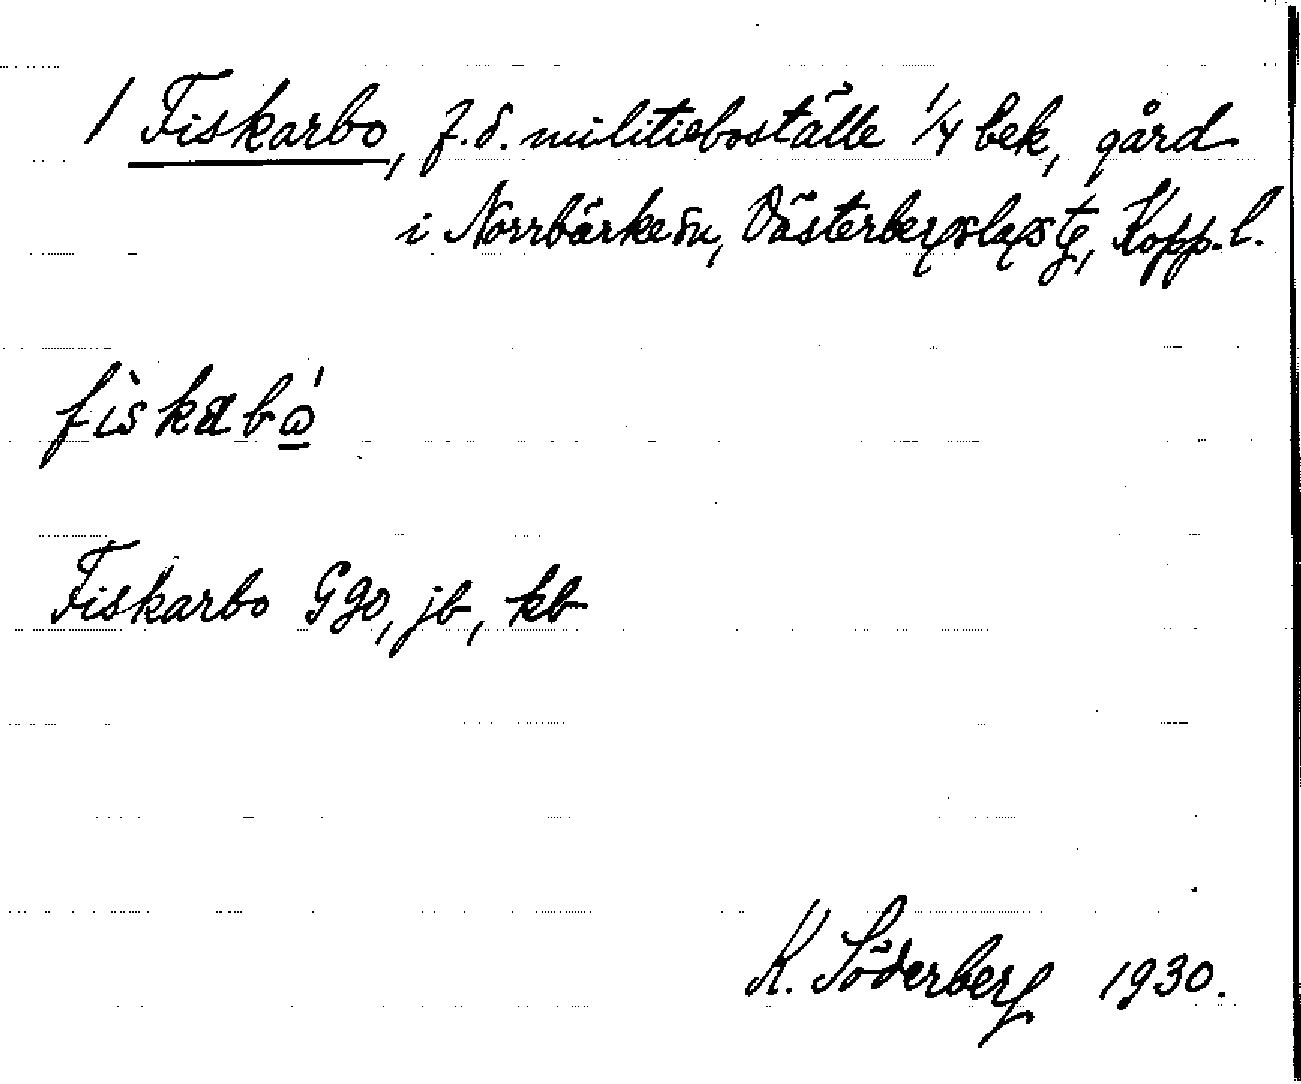 1 Fiskarbo, f.d. militieboställe 1/4 bek, gård
i Norrbärke sn, Västerbergslags tg, Kopp. l.
fìskabό̱
Fiskarbo Ggo, jb, kb
K. Söderberg 1930.